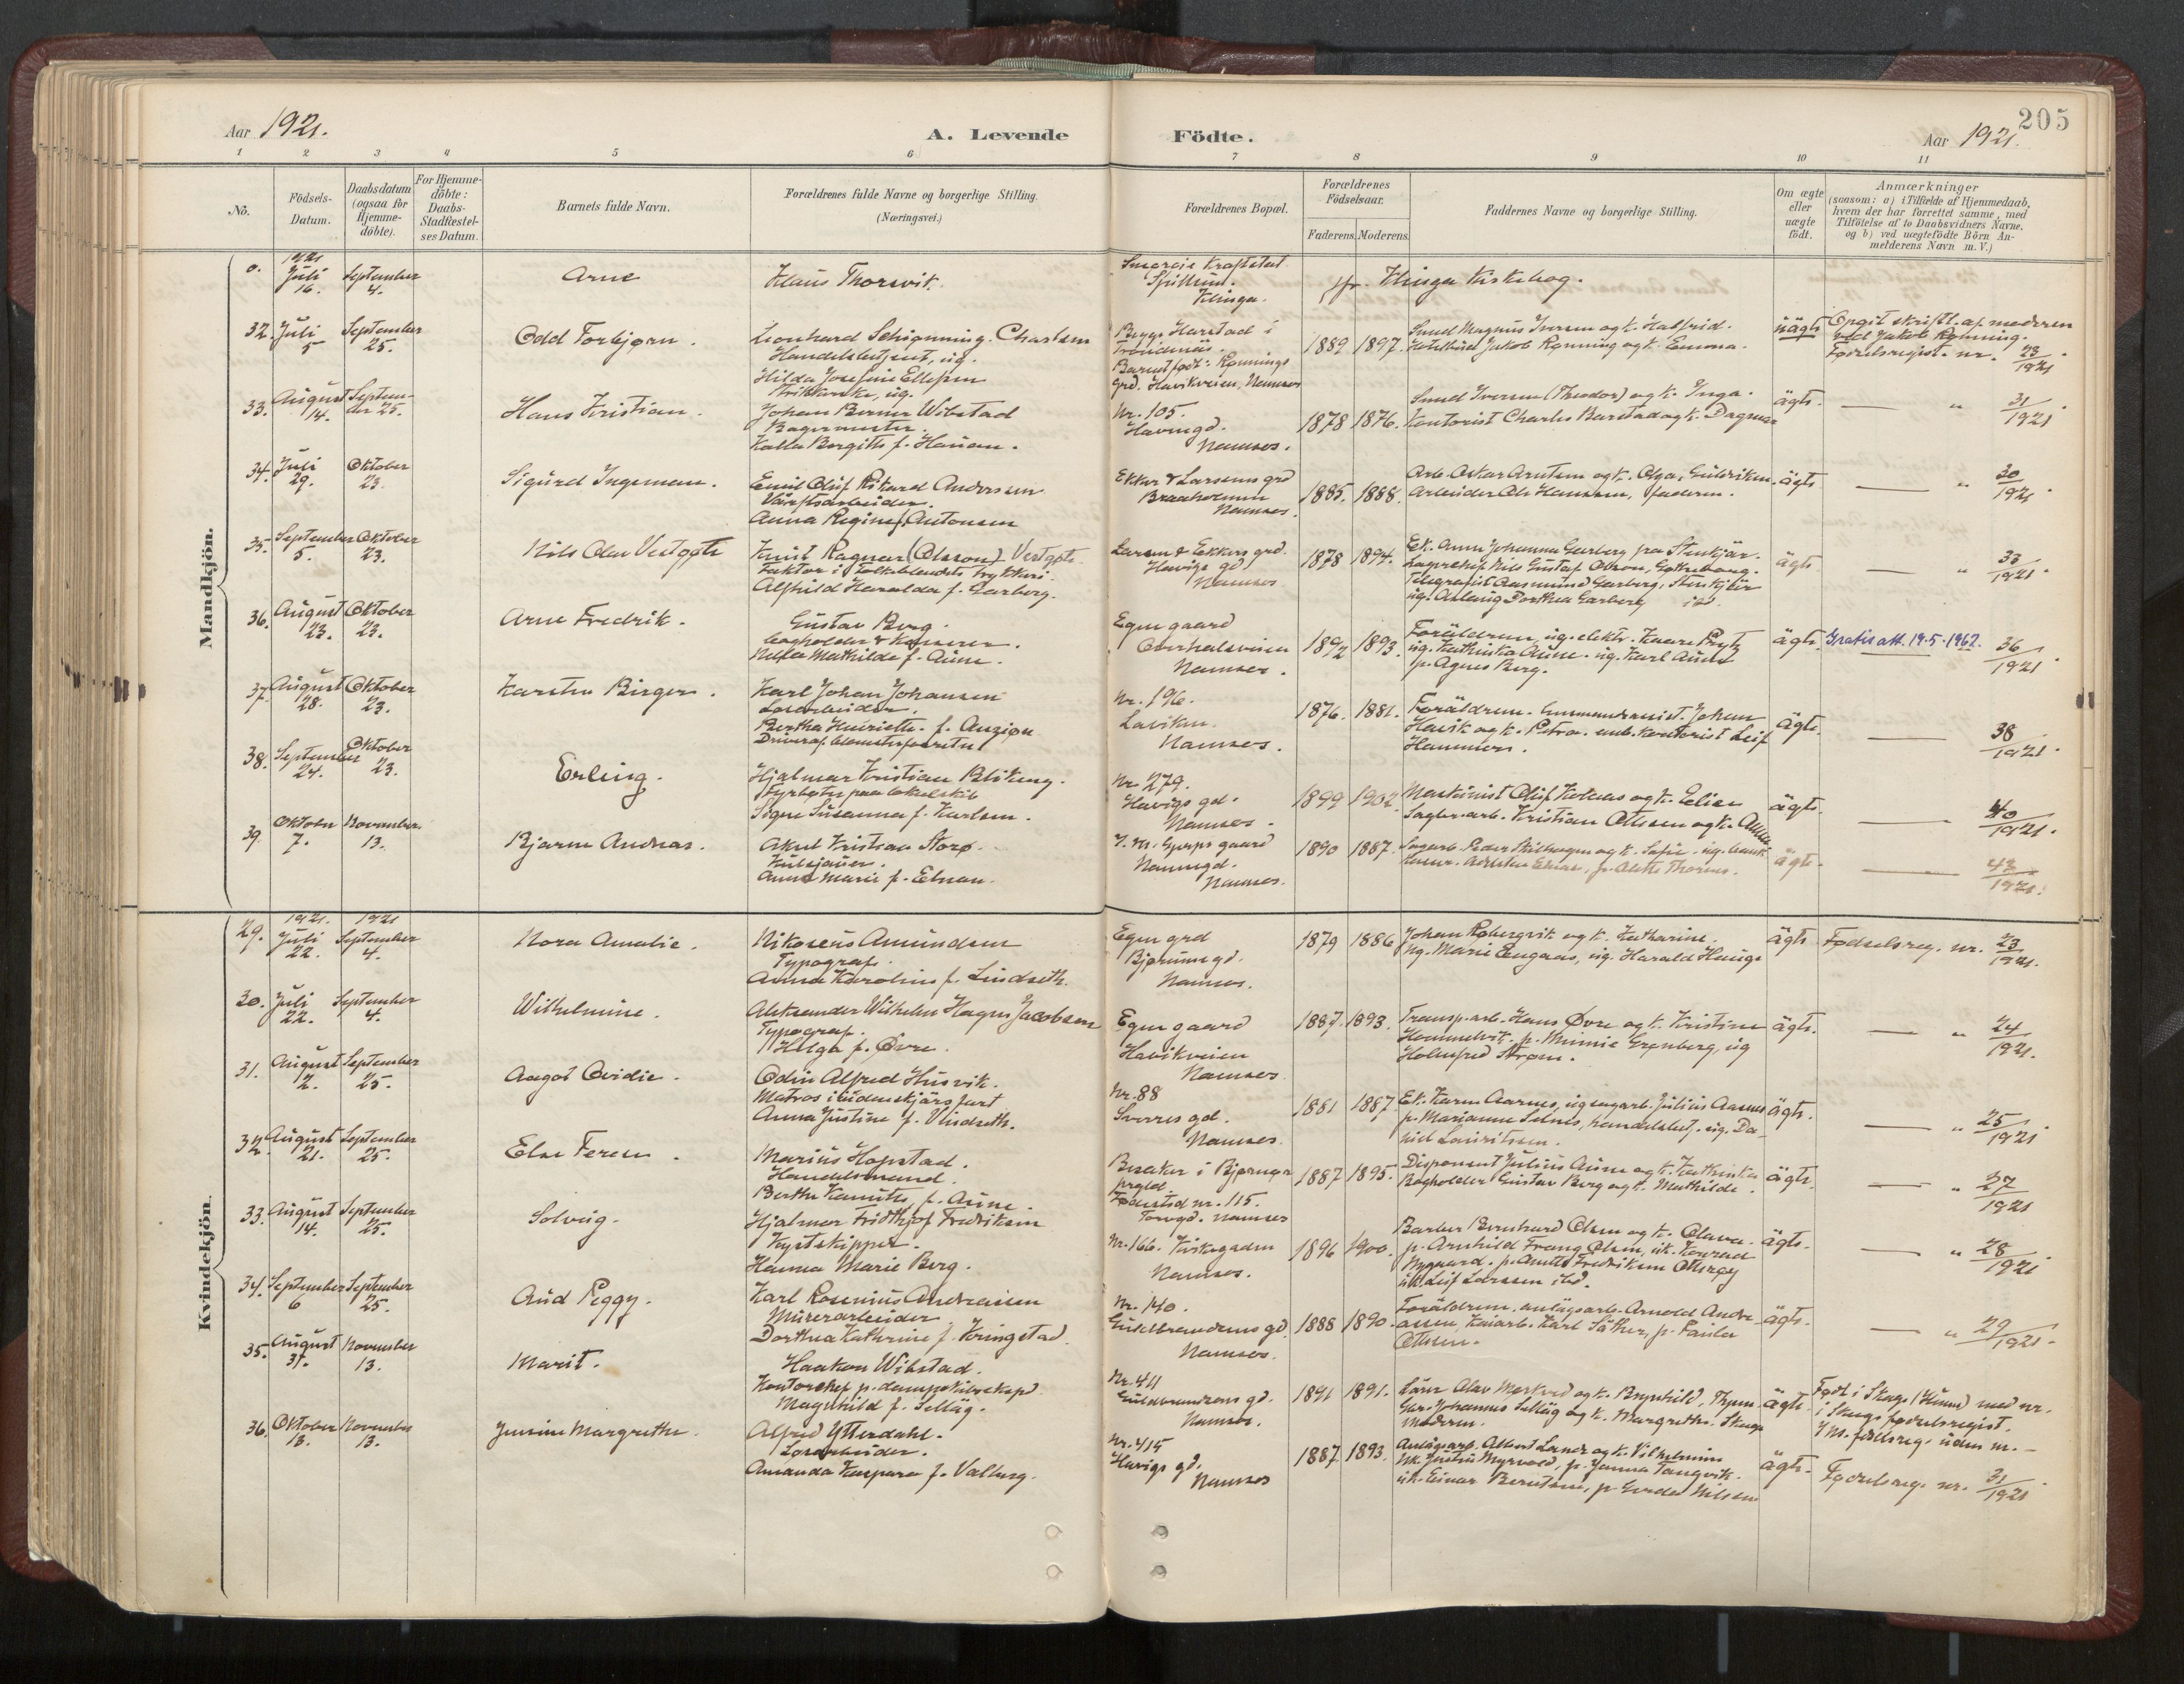 205
Aar 1921.
A. Levende Födte.
Aar 1921.
1 2 3 4 5 6 7 8 9 10 11
No.
Födsels-
Datum.
Daabsdatum
(ogsaa for
Hjemme-
döbte).
For Hjemme-
döbte:
Daabs-
Stadfæstel-
ses Datum.
Barnets fulde Navn.
Forældrenes fulde Navne og borgerlige Stilling.
(Næringsvei.)
Forældrenes Bopæl.
Forældrenes
Födselsaar.
Faderens. Moderens.
Faddernes Navne og borgerlige Stilling.
Om ægte
eller
uægte
födt.
Anmærkninger
(saasom: a) i Tilfælde af Hjemmedaab,
hvem der har forrettet samme, med
Tilföielse af to Daabsvidners Navne.
og b) ved uægtefödte Börn An-
melderens Navn m. V.)
Mandkjön.
0.
1921
Juli
16.
September
4.
Arne
Klaus Thorsvik.
Spillum.
Klinga.
Klinga Kirkebog.
32.
Juli
5
September
25.
Odd Torbjørn.
Leonhard Charlsen
Handelsbetjent, ug.
Hilda Josefine Ellefsen
ug.
Harstad i
Barnet født: Rønnings
grd. Havikveien, Namsos
1889 1897.
Magnus Iversen og k. Halfrid.
Jakob Rønning og k. Emma.
uägte
Opgit skriftl. af moderen
ved Jakob Rønning.
Fødselsregist. nr. 23/1921.
33.
August
14.
Septem-
ber 25.
Hans Kristian.
Johan Berner Wibstad
Bagermester.
Kalla Bergitte f. Hansen.
Nr. 105.
Havnegd.
Namsos.
1878 1876.
Smed Iversen (Theodor) og k. Inga.
Kontorist Charles Barstad og k. Dagmar
ägte.
— " 31/1921
34.
Juli
29.
Oktober
23.
Sigurd Ingeman.
Emil Oluf Rikard Andersen
Anna Regine f. Antonsen
Ekker & Larsens grd
Namsos.
1885. 1888.
Arb. Oskar Arntsen og k. Olga,
Arbeider Ole Hansen, faderen.
ägte
— " 30/1921.
35.
September
5.
Oktober
23.
Nils Olav Vestgøte
Knut Ragnar (Olsson) Vestgøte.
Faktor i Folkebladets trykkeri.
Alfhild Haralda f. Garberg.
Larsen & Ekkers grd.
Havigs gd
Namsos
1878 1894.
Ek. Anne Johanna Garberg fra Stenkjär.
Lagerchef Nils Gustaf Olson,
Telegrafist Aasmund Garberg, Stenkjär
ug. Aslaug Dorthea Garberg ibd.
ägte
— " 33/1921.
36.
August
23.
Oktober
23.
Arne Fredrik.
Gustav Berg.
bogholder & kasserer.
Mathilde f. Aune.
Egen gaard
Overhalsveien
Namsos.
1892 1893.
Foräldrene, ug. elektr. Kaare Prytz
ug. Kathinka Aune. ug. Karl Aune
p. Agnes Berg.
ägte.
Gratis att. 19.5.1962.
36/1921.
37.
August
28.
Oktober
23.
Karsten Birger.
Karl Johan Johansen
Losarbeider.
Bertha Henriette f.
Nr. 196.
Namsos.
1876. 1881.
Foräldrene. Johan
Havik og k. Petra. Kontorist Leif
Hammer.
ägte.
— 38/1921.
38.
September
24.
Oktober
23.
Erling.
Hjalmar Kristian
Fyrbøter paa lokalskib
Signe Susanna f. Karlsen.
Nr. 279.
Havigs gd.
Namsos.
1899 1902.
Maskinist Oluf og k.
Kristian Ottesen og k. Anna
ägte
— 40/1921.
39.
Oktober
7.
November
13.
Bjarne Andreas.
Aksel Kristian Storø.
Kulsjauer.
Anna Marie f. Elnan.
gaard
Havnegd.
Namsos.
1890 1887.
Sagarb. Peder og k. Sofie. ug.
Elnan, p. Thorsen.
ägte.
— 42/1921.
Kvindekjön.
29.
1921.
Juli
22.
1921
September
4.
Nora Amalie.
Nikoseus Amundsen
Typograf.
Anna Karoline f. Lindseth.
Egen grd
Bjørumsgd.
Namsos.
1879 1886
Johan og k. Katharine.
Ug. Marie Engaas, ug. Harald Hauge
ägte
Fødselsreg. nr. 23/1921.
30.
Juli
22.
September
4.
Wilhelmine.
Aleksander Wilhelm Hagen Jacobsen
Typograf.
Helga f. Øvre.
Egen gaard
Havikveien
Namsos
1887. 1893.
Transp. arb. Hans Øvre og k. Kristine
Hommelvik. p. Minnie Grønberg, ug
Holmfred Strøm.
ägte.
— " 24/1921.
31.
August
2.
September
25.
Aagot Ovidie.
Odin Alfred Husvik.
Matros i udenskjärs fart
Anna Justine f. Vindseth.
Nr. 88
Sverres gd.
Namsos.
1881 1887.
Ek. Karen Aarnes, ug sagarb. Julius Aasnes
p. Marianne Selnes, handelsbetj. ug. Da-
niel Lauritsen.
ägte.
— " 25/1921
32.
August
21.
September
25.
Else Feren.
Marius Hopstad.
Handelsmand.
Berthe Kamitte, f. Aune.
Besaker i Bjørnør
prgld.
Fødested nr. 115.
Torvgd. Namsos
1887 1895.
Disponent Julius Aune og k. Kathinka
Bogholder Gustav Berg og k. Mathilde.
ägte.
— " 27/1921
33.
August
14.
September
25.
Solveig.
Hjalmar Fridthjof Fredriksen
Kystskipper.
Hanna Marie Berg.
Nr. 166. Kirkegaden
Namsos.
1896 1900.
Barber Bernhard Olsen og k. Olava.
p. Arnhild Frang Olsen, uk. Konrad
Nygaard. p. Fredriksen Otterøy
uk Leif Larssen ibd.
ägte.
— " 28/1921.
34.
September
6
September
25.
Aud Peggy.
Karl Rosenius Andreassen
Murerarbeider
Dorthea Kathrine f. Kringstad.
Nr. 140.
Guldbrandsens gd.
Namsos.
1888 1890.
Foräldrene. anlägsarb. Arnold Andre-
assen, Kaiarb. Karl Säther, p. Paula
Ottesen.
ägte.
— " 29/1921.
35.
August
31.
November
13.
Marit.
Haakon Wibstad.
Kontorchef p. dampskibsekspd.
Magnhild f. Selläg.
Nr. 411
Guldbrandsens gd.
Namsos.
1891 1891.
Lärer Olav Merkved og k. Brynhild,
Gbr. Johannes Selläg og k. Margrethe. Skage
Moderen.
ägte.
Født i Skage (Hunn) med nr.
i Skage fødselsregist.
I Ns. fødselsreg. uden nr. —
36.
Oktober
13.
November
13.
Jensine Margrethe.
Alfred Ytterdahl.
Losarbeider.
Amanda Kaspara f. Valberg.
Nr. 415
Havigs gd.
Namsos
1887 1893.
Anlägsarb. Albert Lande og k. Vilhelmine
Uk. Justin Myrvold, p. Janna Tangvik.
uk. Einar Berntsen, p Gerda Nilsen
ägte.
Fødselsreg. nr. 31/1921.